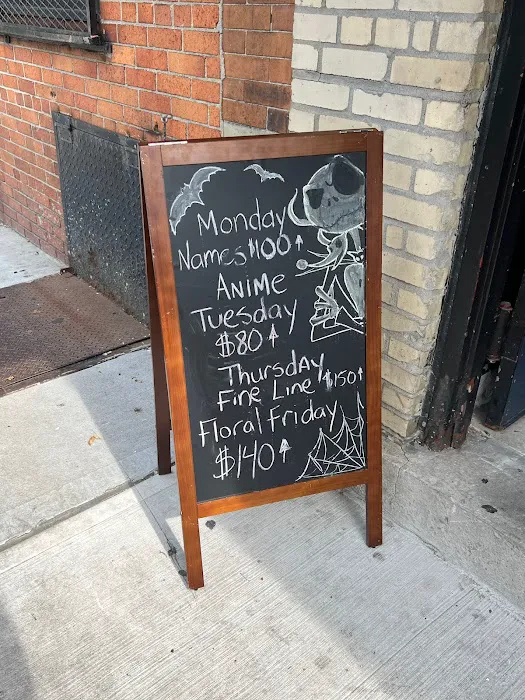 Monday
Names $100↑
ANiMe
Tuesday
$80↑
ThursdAy
Fine Line $150↑
Floral Friday
$140↑